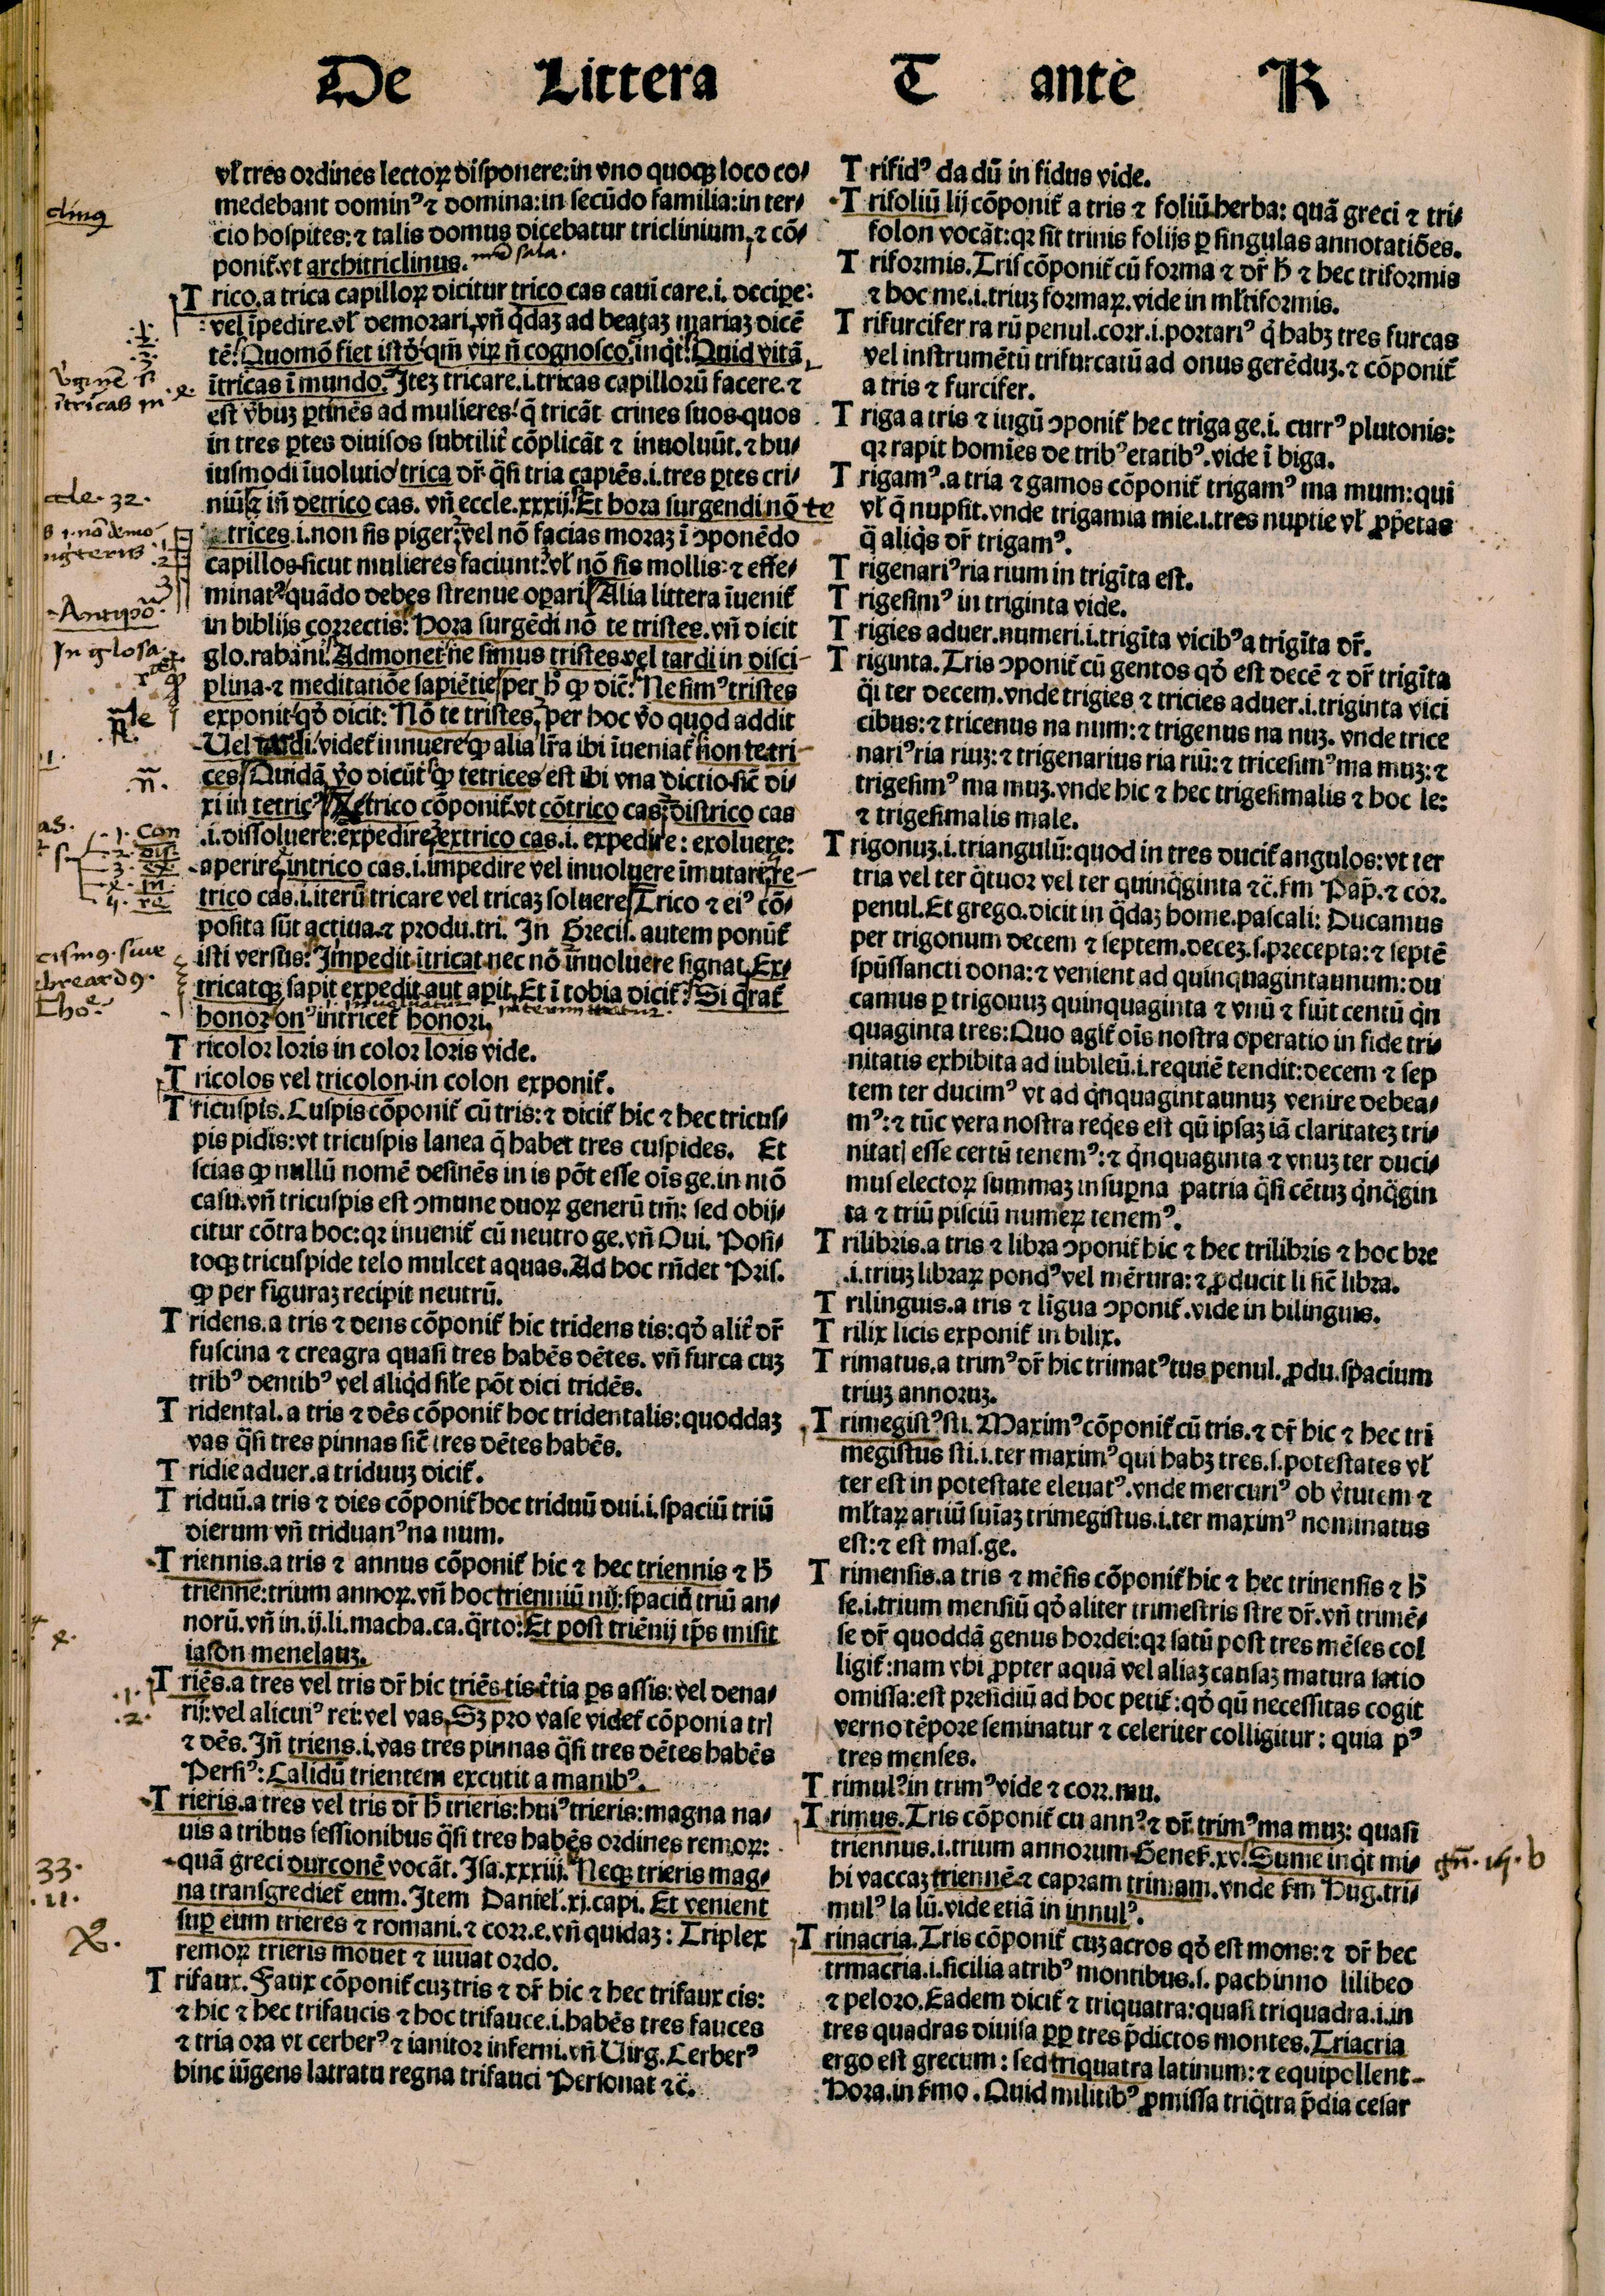 De Littera T ante R
vł tres ordines lectoꝝ disponere: in vno quoqꝫ loco co⸗
medebant dominꝰ ⁊ domina: in secūdo familia: in ter⸗
cio hospites: ⁊ talis domus dicebatur triclinium, ⁊ cō⸗
ponit᷑. vt architriclinus.
Trico. a trica capilloꝝ dicitur trico cas caui care .i. decipe:
vel īpedire. vł demorari, vn̄ q̄daꝫ ad beataꝫ mariaꝫ dicē
tē: Quomō fiet istḋ qm̄ viꝝ n̄ cognosco, inq̇t: Quid vitā
ītricas ī mundo. Iteꝫ tricare .i. tricas capillorū facere. ⁊
est v̄buꝫ ꝑtinēs ad mulieres: q̄ tricāt crines suos quos
in tres ꝑtes diuisos subtilit᷑ cōplicāt ⁊ inuoluūt. ⁊ hu⸗
iusmodi īuolutio trica dr̄. q̄si tria capiēs .i. tres ꝑtes cri⸗
niū ⁊ in̄ detrico cas. vn̄ eccle. xxxij. Et hora surgendi nō te
trices .i. non sis piger: vel nō facias moraꝫ ī ↄponēdo
capillos sicut mulieres faciunt: vł nō sis mollis: ⁊ effe⸗
minatꝰ quādo debes strenue oꝑari Alia littera īuenit᷑
in biblijs correctis: Hora surgēdi nō te tristes. vn̄ dicit
glo. rabani. Admonet ne simus tristes vel tardi in disci⸗
plina ⁊ meditatiōe sapiētie per ħ ꝙ dic̄: Ne simꝰ tristes
exponit qḋ dicit: Nō te tristes, per hoc v̇o quod addit
Uel tardi. videt᷑ innuere ꝙ alia lr̄a ibi īueniat᷑ non te tri⸗
ces Quidā v̇o dicūt ꝙ tetrices est ibi vna dictio sic̄ di⸗
xi in tetricꝰ Et trico cōponit᷑. vt cōtrico cas, districo cas
.i. dissoluere: expedire, extrico cas .i. expedire: exoluere:
aperire, intrico cas .i. impedire vel inuoluere īmutare, re⸗
trico cas .i. iterū tricare vel tricaꝫ soluere Trico ⁊ eiꝰ cō⸗
posita sūt actiua ⁊ produ. tri. In Grecis. autem ponūt᷑
isti versus: Impedit ītricat nec nō inuoluere signat, Ex⸗
tricatqꝫ sapit expedit aut aꝑit, Et ī tobia dicit᷑: Si q̄rat᷑
honor onꝰ intricet᷑ honori.
Tricolor loris in color loris vide.
Tricolos vel tricolon in colon exponit᷑.
Tricuspis. Cuspis cōponit᷑ cū tris: ⁊ dicit᷑ hic ⁊ hec tricus⸗
pis pidis: vt tricuspis lanea q̄ habet tres cuspides. Et
scias ꝙ nullū nomē desinēs in is pōt esse oīs ge. in ntō
casu. vn̄ tricuspis est ↄmune duoꝝ generū tm̄: sed obij⸗
citur cōtra hoc: qꝛ inuenit᷑ cū neutro ge. vn̄ Oui. Posi⸗
toqꝫ tricuspide telo mulcet aquas. Ad hoc rn̄det Pris.
ꝙ per figuraꝫ recipit neutrū.
Tridens. a tris ⁊ dens cōponit᷑ hic tridens tis: qḋ alit᷑ dr̄
fuscina ⁊ creagra quasi tres habēs dētes. vn̄ furca cuꝫ
tribꝰ dentibꝰ vel aliq̇d sił̄e pōt dici tridēs.
Tridental. a tris ⁊ dēs cōponit᷑ hoc tridentalis: quoddaꝫ
vas q̄si tres pinnas sic̄ tres dētes habēs.
Tridie aduer. a triduuꝫ dicit᷑.
Triduū. a tris ⁊ dies cōponit᷑ hoc triduū dui .i. spaciū triū
dierum vn̄ triduanꝰ na num.
Triennis. a tris ⁊ annus cōponit᷑ hic ⁊ hec triennis ⁊ ħ
trienne: trium annoꝝ. vn̄ hoc trienniū nij: spaciū triū an⸗
norū. vn̄ in .ij. li. macha. ca. q̄rto: Et post triēnij tp̄s misit
iason menelauꝫ.
Triēs. a tres vel tris dr̄ hic triēs tis t̄tia ꝑs assis: vel dena⸗
rij: vel alicuiꝰ rei: vel vas, Sꝫ pro vase videt᷑ cōponi a tri
⁊ dēs. In̄ triens .i. vas tres pinnas q̄si tres dētes habēs
Persiꝰ: Calidū trientem excutit a manibꝰ.
Trieris. a tres vel tris dr̄ ħ trieris: huiꝰ trieris: magna na⸗
uis a tribus sessionibus q̄si tres habēs ordines remoꝝ:
quā greci durconē vocāt. Isa. xxxiij. Neqꝫ trieris mag⸗
na transgrediet᷑ eum. Item Daniel. xj. capi. Et venient
suꝑ eum trieres ⁊ romani. ⁊ corr. e. vn̄ quidaꝫ: Triplex
remoꝝ trieris mouet ⁊ iuuat ordo.
Trifaux. Faux cōponit᷑ cuꝫ tris ⁊ dr̄ hic ⁊ hec trifaux cis:
⁊ hic ⁊ hec trifaucis ⁊ hoc trifauce .i. habēs tres fauces
⁊ tria ora vt cerberꝰ ⁊ ianitor inferni. vn̄ Uirg. Cerberꝰ
hinc iṅgens latratu regna trifauci Personat ⁊c̄.
Trifidꝰ da dū in fidus vide.
Trifoliū lij cōponit᷑ a tris ⁊ foliū herba: quā greci ⁊ tri⸗
folon vocāt: qꝛ sit trinis folijs ꝑ singulas annotatiōes.
Triformis. Tris cōponit᷑ cū forma ⁊ dr̄ ħ ⁊ hec triformis
⁊ hoc me .i. triuꝫ formaꝝ. vide in mł̄tiformis.
Trifurcifer ra rū penul. corr. i. portariꝰ q̇ habꝫ tres furcas
vel instrumētū trifurcatū ad onus gerēduꝫ. ⁊ cōponit᷑
a tris ⁊ furcifer.
Triga a tris ⁊ iugū ↄponit᷑ hec triga ge .i. currꝰ plutonis:
qꝛ rapit homīes de tribꝰ etatibꝰ. vide ī biga.
Trigamꝰ. a tria ⁊ gamos cōponit᷑ trigamꝰ ma mum: qui
vł q̄ nupsit. vnde trigamia mie .i. tres nuptie vł ꝓp̄etas
q̄ aliq̇s dr̄ trigamꝰ.
Trigenariꝰ ria rium in trigīta est.
Trigesimꝰ in triginta vide.
Trigies aduer. numeri .i. trigīta vicibꝰ a trigīta dr̄.
Triginta. Tris ↄponit᷑ cū gentos qḋ est decē ⁊ dr̄ trigīta
q̄i ter decem. vnde trigies ⁊ tricies aduer .i. triginta vici
cibus: ⁊ tricenus na num: ⁊ trigenus na nuꝫ. vnde trice
nariꝰ ria riuꝫ: ⁊ trigenarius ria riū: ⁊ tricesimꝰ ma muꝫ: ⁊
trigesimꝰ ma muꝫ. vnde hic ⁊ hec trigesimalis ⁊ hoc le:
⁊ trigesimalis male.
Trigonuꝫ .i. triangulū: quod in tres ducit᷑ angulos: vt ter
tria vel ter q̄tuor vel ter quinq̄ginta ⁊c̄. fm Pap̄. ⁊ cor.
penul. Et grego. dicit in q̄daꝫ home. pascali: Ducamus
per trigonum decem ⁊ septem. deceꝫ .s. precepta: ⁊ septē
spūssancti dona: ⁊ venient ad quinquagintaunum: du
camus ꝑ trigonuꝫ quinquaginta ⁊ vnū ⁊ fiūt centū q̇n
quaginta tres: Quo agit᷑ oīs nostra operatio in fide tri⸗
nitatis exhibita ad iubileū .i. requiē tendit: decem ⁊ sep
tem ter ducimꝰ vt ad q̇nquagintaunuꝫ venire debea⸗
mꝰ: ⁊ tūc vera nostra req̇es est qū ipsaꝫ iā claritateꝫ tri⸗
nitatꝭ esse certū tenemꝰ: ⁊ q̇nquaginta ⁊ vnuꝫ ter duci⸗
mus electoꝝ summaꝫ in suꝑna patria q̄si cētuꝫ q̇nq̄gin
ta ⁊ triū pisciū numeꝝ tenemꝰ.
Trilibris. a tris ⁊ libra ↄponit᷑ hic ⁊ hec trilibris ⁊ hoc bre
.i. triuꝫ libraꝝ pondꝰ vel mēsura: ⁊ ꝓducit li sic̄ libra.
Trilinguis. a tris ⁊ līgua ↄponit᷑. vide in bilinguis.
Trilix licis exponit᷑ in bilix.
Trimatus. a trimꝰ dr̄ hic trimatꝰ tus penul. ꝓdu. spacium
triuꝫ annoruꝫ.
Trimegistꝰ sti. Maximꝰ cōponit᷑ cū tris. ⁊ dr̄ hic ⁊ hec tri
megistus sti .i. ter maximꝰ qui habꝫ tres .s. potestates vł
ter est in potestate eleuatꝰ. vnde mercuriꝰ ob v̇tutem ⁊
mł̄taꝝ artiū sum̄aꝫ trimegistus .i. ter maximꝰ nominatus
est: ⁊ est mas. ge.
Trimensis. a tris ⁊ mēsis cōponit᷑ hic ⁊ hec trinensis ⁊ ħ
se .i. trium mensiū qḋ aliter trimestris stre dr̄. vn̄ trimē⸗
se dr̄ quoddā genus hordei: qꝛ satū post tres mēses col
ligit᷑: nam vbi ꝓpter aquā vel aliaꝫ causaꝫ matura satio
omissa: est presidiū ad hoc petit᷑: qḋ qū necessitas cogit
verno tēpore seminatur ⁊ celeriter colligitur: quia pꝰ
tres menses.
Trimulꝰ in trimꝰ vide ⁊ corr. mu.
Trimus. Tris cōponit᷑ cu annꝰ ⁊ dr̄ trimꝰ ma muꝫ: quasi
triennus .i. trium annorum Genes̄. xv. Sume inq̇t mi⸗
hi vaccaꝫ triennē ⁊ capram trimam. vnde fm Hug. tri⸗
mulꝰ la lū. vide etiā in innulꝰ.
Trinacria. Tris cōponit᷑ cuꝫ acros qḋ est mons: ⁊ dr̄ hec
trinacria .i. sicilia a tribꝰ montibus .s. pachinno lilibeo
⁊ peloro. Eadem dicit᷑ ⁊ triquatra: quasi triquadra .i. in
tres quadras diuisa ꝑꝑ tres p̄dictos montes. Triacria
ergo est grecum: sed triquatra latinum: ⁊ equipollent
Hora. in fmo. Quid militibꝰ ꝓmissa triq̄tra p̄dia cesar